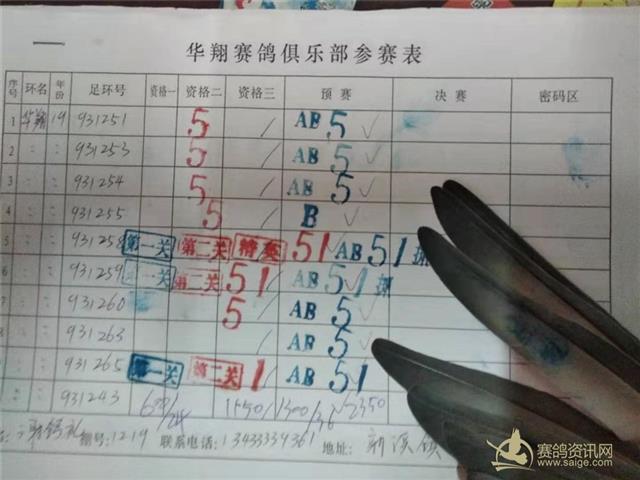 华翔赛鸽俱乐部参赛表
序号 环名 年份 足环号 资格一 资格二 资格三 预赛 决赛 密码区
1 华翔 19 931251 5 / AB 5 ✓
2 〃 〃 931253 5 / AB 5 ✓
3 〃 〃 931254 5 / AB 5 ✓
4 〃 〃 931255 5 / B ✓
5 〃 〃 931258 第一关 第二关 精英 51 AB 51
6 〃 〃 931259 第一关 第二关 51 AB 51
7 〃 〃 931260 5 / AB 5 ✓
〃 〃 931263 / AB 5 ✓
〃 〃 931265 第一关 第二关 1 AB 51
〃 〃 931243 1550 1300 2350
棚号:1219 联系电话:13433339361 地址: 新溪镇
赛鸽资讯网
www.saige.com